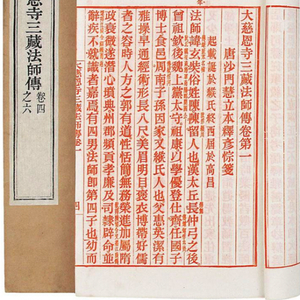 大慈恩寺三藏法師傳卷第一
唐沙門慧立本釋彥悰箋
起載誕於緱氏終西屆於高昌
法師諱玄奘俗姓陳陳留人也漢太丘長仲弓之後
曾祖欽後魏上黨太守祖康以學優登仕齊任國子
博士食邑周南子孫因家又緱氏人也父惠英潔有
雅操早通經術形長八尺美眉明目褒衣博帶好儒
者之容時人方之郭有道性恬簡無務榮進加屬隋
政衰微遂潛心墳典州郡頻貢孝廉及司隸辟命並
辭疾不就識者嘉焉有四男法師即第四子也幼而
慈恩寺三藏法師傳 卷四之六